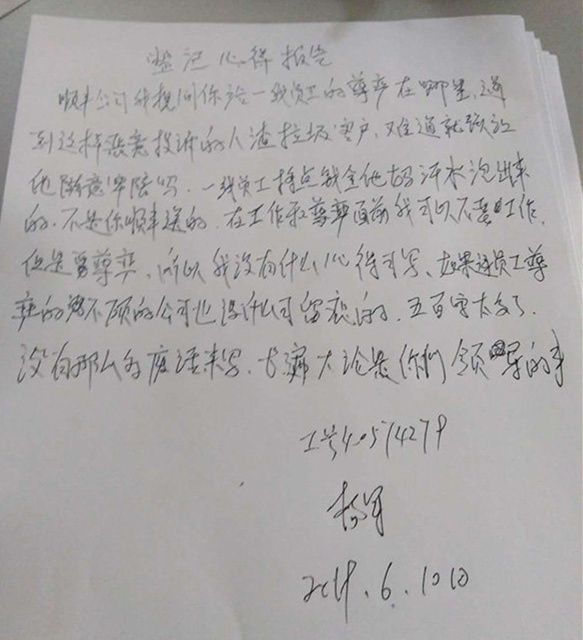 登记心得报告
顺丰公司我想问你给一线员工的尊严在哪里,遇
到这样恶意投诉的人渣垃圾客户,难道就该让
他随意 吗.一线员工挣点钱全他妈汗水泡出来
的.不是你顺丰送的.在工作和尊严面前我可以不要工作.
但是要尊严、所以我没有什么心得可写、如果连员工尊
严的 不顾的公司也没什么可留恋的.五百字太多了.
没有那么多废话来写.长篇大论是你们领导的事
工号40574279
6.10日